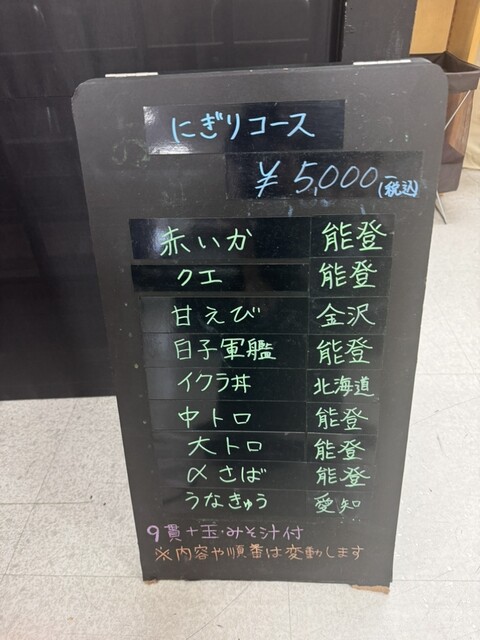 にぎりコース
¥5,000-(税込)
赤いか 能登
クエ 能登
甘えび 金沢
白子軍艦 能登
イクラ丼 北海道
中トロ 能登
大トロ 能登
〆さば 能登
うなきゅう 愛知
9貫+玉・みそ汁付
※内容や順番は変動します